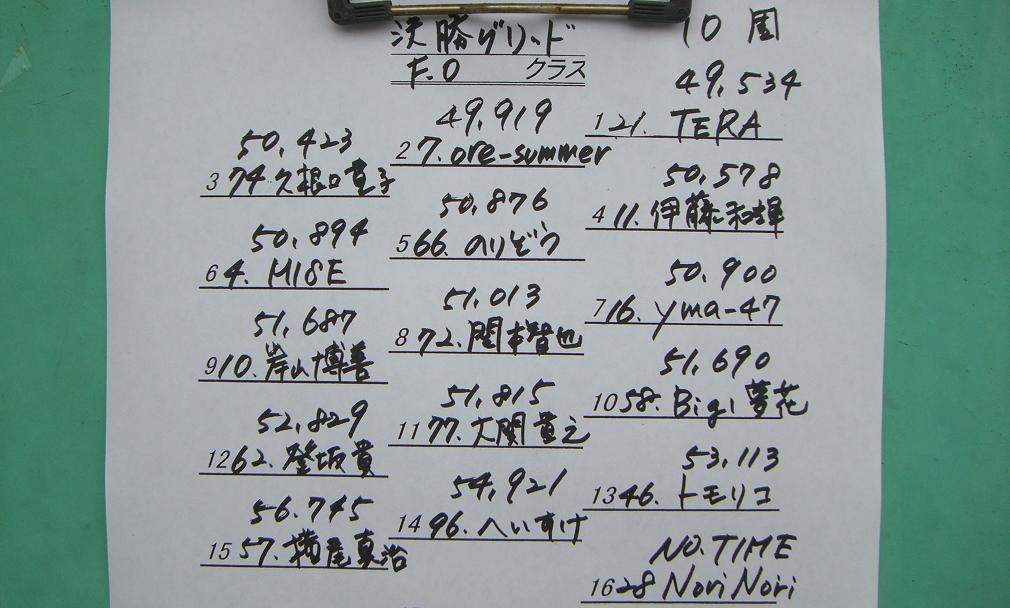 決勝グリッド
10周
F.0 クラス
49,534
1 21. TERA
49,919
2 7. ore-summer
50,423
3 74 久根口貴子
50,578
4 11. 伊藤和輝
50,876
5 66. のりぞう
50,894
6 4. MISE
50.900
7 16. yma-47
51,013
8 72. 関本智也
51,687
9 10. 岸山博善
51,690
10 58. Big1夢花
51,815
11 77. 大関貴之
52,829
12 62. 登坂貴
53,113
13 46. トモリコ
54,921
14 96. へいすけ
56.745
15 57. 横尾真治
NO.TIME
16 28 Nori Nori